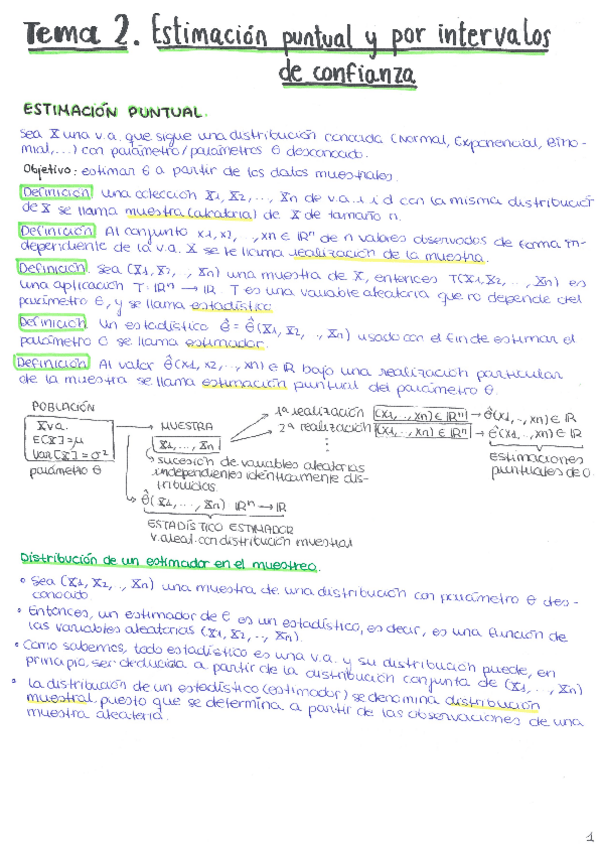 Tema 2. Estimación puntual y por intervalos
de confianza
ESTIMACIÓN PUNTUAL.
Sea X una v.a. que sigue una distribución conocida (Normal, Exponencial, Bino-
mial,...) con parámetro/parámetros θ desconocido.
Objetivo: estimar θ a partir de los datos muestrales.
Definición Una colección X1, X2, ..., Xn de v.a. i.i.d con la misma distribución
de X se llama muestra (aleatoria) de X de tamaño n.
Definición. Al conjunto x1, x2, ..., xn ∈ ℝⁿ de n valores observados de forma in-
dependiente de la v.a. X se le llama realización de la muestra.
Definición. Sea (X1, X2, ..., Xn) una muestra de X, entonces T(X1, X2, ..., Xn) es
una aplicación T: ℝⁿ → ℝ T es una variable aleatoria que no depende del
parámetro θ, y se llama estadístico.
Definición Un estadístico θ̂ = θ̂(X1, X2, ..., Xn) usado con el fin de estimar el
parámetro θ se llama estimador.
Definición Al valor θ̂(x1, x2, .., xn) ∈ ℝ bajo una realización particular
de la muestra se llama estimación puntual del parámetro θ.
POBLACIÓN
X v.a.
E[X]=μ
Var[X]=σ²
parámetro θ
MUESTRA
X1, ..., Xn
1ª realización (x1, .., xn) ∈ ℝⁿ → θ̂(x1, .., xn) ∈ ℝ
2ª realización (x1, .., xn) ∈ ℝⁿ → θ̂(x1, .., xn) ∈ ℝ
⋮
estimaciones
puntuales de θ
sucesión de variables aleatorias
independientes idénticamente dis-
tribuidas.
θ̂(X1, ..., Xn) ℝⁿ → ℝ
ESTADÍSTICO ESTIMADOR
v.aleat. con distribución muestral
Distribución de un estimador en el muestreo.
• Sea (X1, X2, .., Xn) una muestra de una distribución con parámetro θ des-
conocido.
• Entonces, un estimador de θ es un estadístico, es decir, es una función de
las variables aleatorias (X1, X2, .., Xn).
• Como sabemos, todo estadístico es una v.a. y su distribución puede, en
principio, ser deducida a partir de la distribución conjunta de (X1, .., Xn)
• La distribución de un estadístico (estimador) se denomina distribución
muestral, puesto que se determina a partir de las observaciones de una
muestra aleatoria.
1